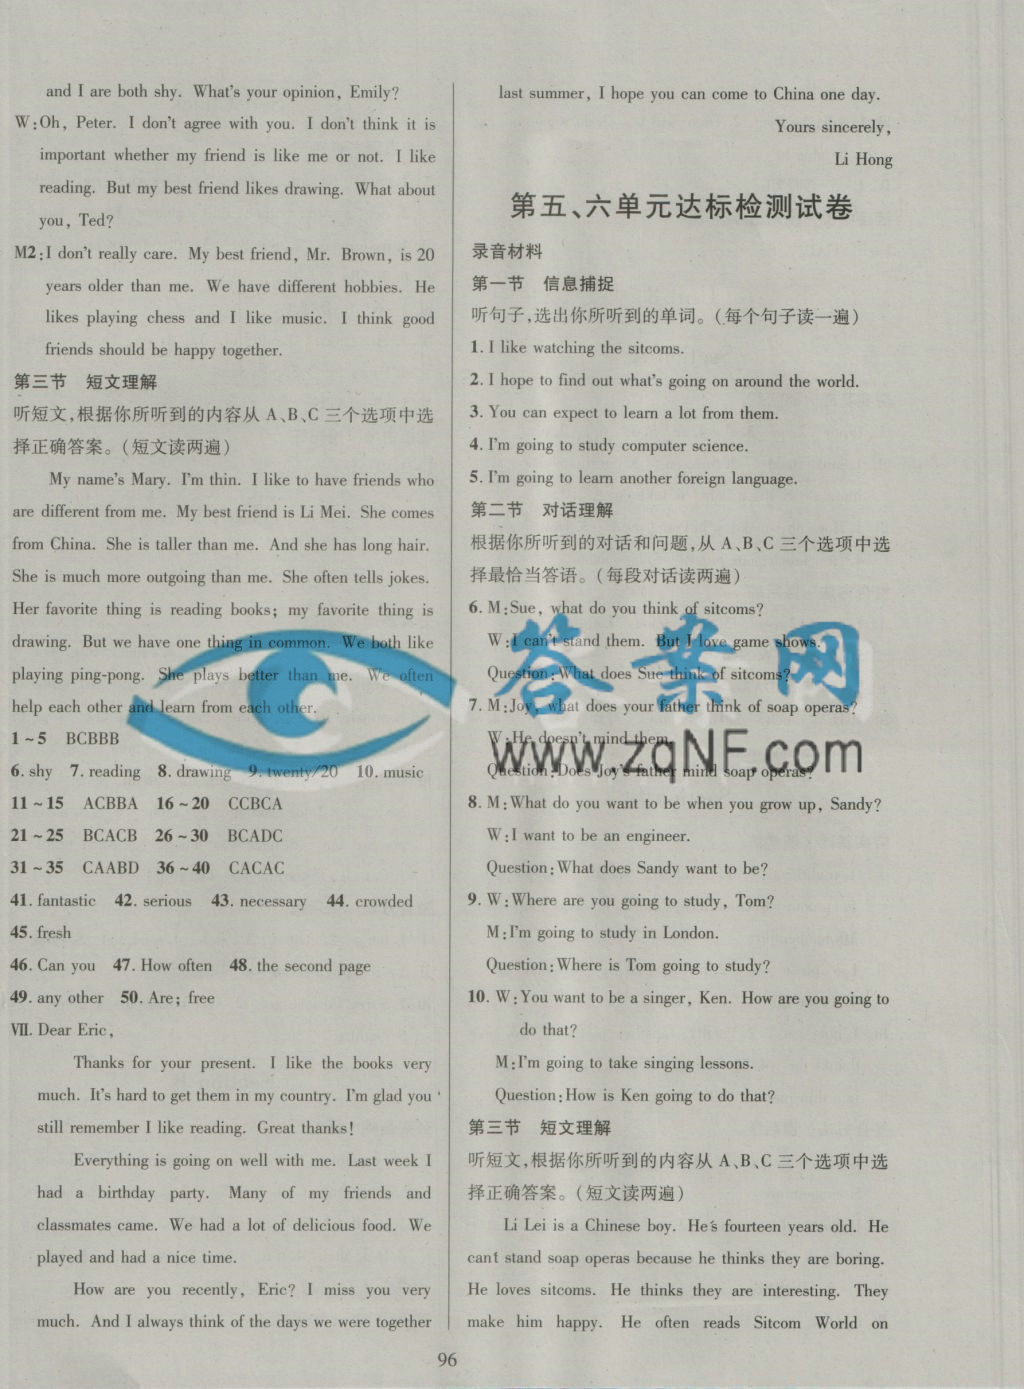 and I are both shy. What's your opinion, Emily?
W:Oh, Peter. I don't agree with you. I don't think it is
important whether my friend is like me or not. I like
reading. But my best friend likes drawing. What about
you, Ted?
M2:I don't really care. My best friend, Mr. Brown, is 20
years older than me. We have different hobbies. He
likes playing chess and I like music. I think good
friends should be happy together.
第三节 短文理解
听短文,根据你所听到的内容从 A、B、C 三个选项中选
择正确答案。(短文读两遍)
My name's Mary. I'm thin. I like to have friends who
are different from me. My best friend is Li Mei. She comes
from China. She is taller than me. And she has long hair.
She is much more outgoing than me. She often tells jokes.
Her favorite thing is reading books; my favorite thing is
drawing. But we have one thing in common. We both like
playing ping-pong. She plays better than me. We often
help each other and learn from each other.
1~5 BCBBB
6. shy 7. reading 8. drawing 9. twenty/20 10. music
11~15 ACBBA 16~20 CCBCA
21~25 BCACB 26~30 BCADC
31~35 CAABD 36~40 CACAC
41. fantastic 42. serious 43. necessary 44. crowded
45. fresh
46. Can you 47. How often 48. the second page
49. any other 50. Are; free
Ⅶ. Dear Eric,
Thanks for your present. I like the books very
much. It's hard to get them in my country. I'm glad you
still remember I like reading. Great thanks!
Everything is going on well with me. Last week I
had a birthday party. Many of my friends and
classmates came. We had a lot of delicious food. We
played and had a nice time.
How are you recently, Eric? I miss you very
much. And I always think of the days we were together
last summer, I hope you can come to China one day.
Yours sincerely,
Li Hong
第五、六单元达标检测试卷
录音材料
第一节 信息捕捉
听句子,选出你所听到的单词。(每个句子读一遍)
1. I like watching the sitcoms.
2. I hope to find out what's going on around the world.
3. You can expect to learn a lot from them.
4. I'm going to study computer science.
5. I'm going to learn another foreign language.
第二节 对话理解
根据你所听到的对话和问题,从 A、B、C 三个选项中选
择最恰当答语。(每段对话读两遍)
6. M:Sue, what do you think of sitcoms?
W:I can't stand them. But I love game shows.
Question:What does Sue think of sitcoms?
7. M:Joy, what does your father think of soap operas?
W:He doesn't mind them.
Question:Does Joy's father mind soap operas?
8. M:What do you want to be when you grow up, Sandy?
W:I want to be an engineer.
Question:What does Sandy want to be?
9. W:Where are you going to study, Tom?
M:I'm going to study in London.
Question:Where is Tom going to study?
10. W:You want to be a singer, Ken. How are you going to
do that?
M:I'm going to take singing lessons.
Question:How is Ken going to do that?
第三节 短文理解
听短文,根据你所听到的内容从 A、B、C 三个选项中选
择正确答案。(短文读两遍)
Li Lei is a Chinese boy. He's fourteen years old. He
can't stand soap operas because he thinks they are boring.
He loves sitcoms. He thinks they are interesting. They
make him happy. He often reads Sitcom World on
96
答案网
www.zqNF.com